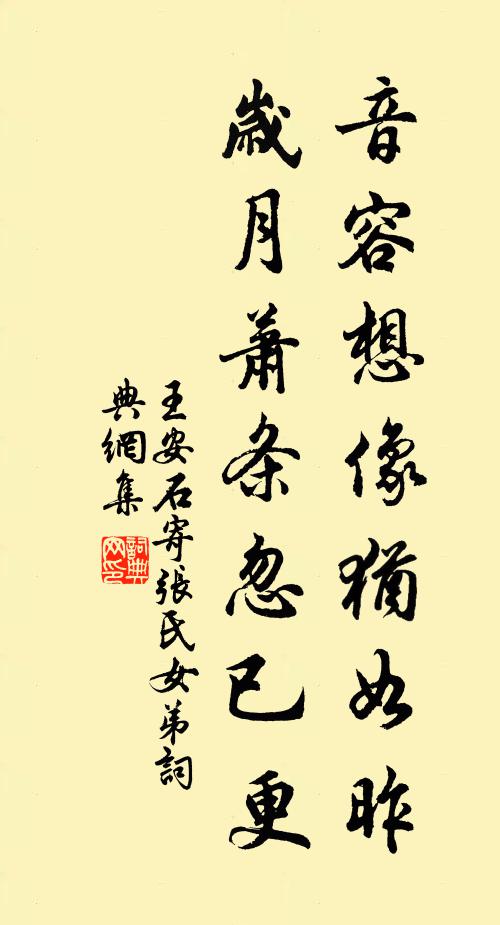 音容想像猶如昨
歲月蕭条忽已更
王安石寄張氏女弟詞
典網集
詞典
网印